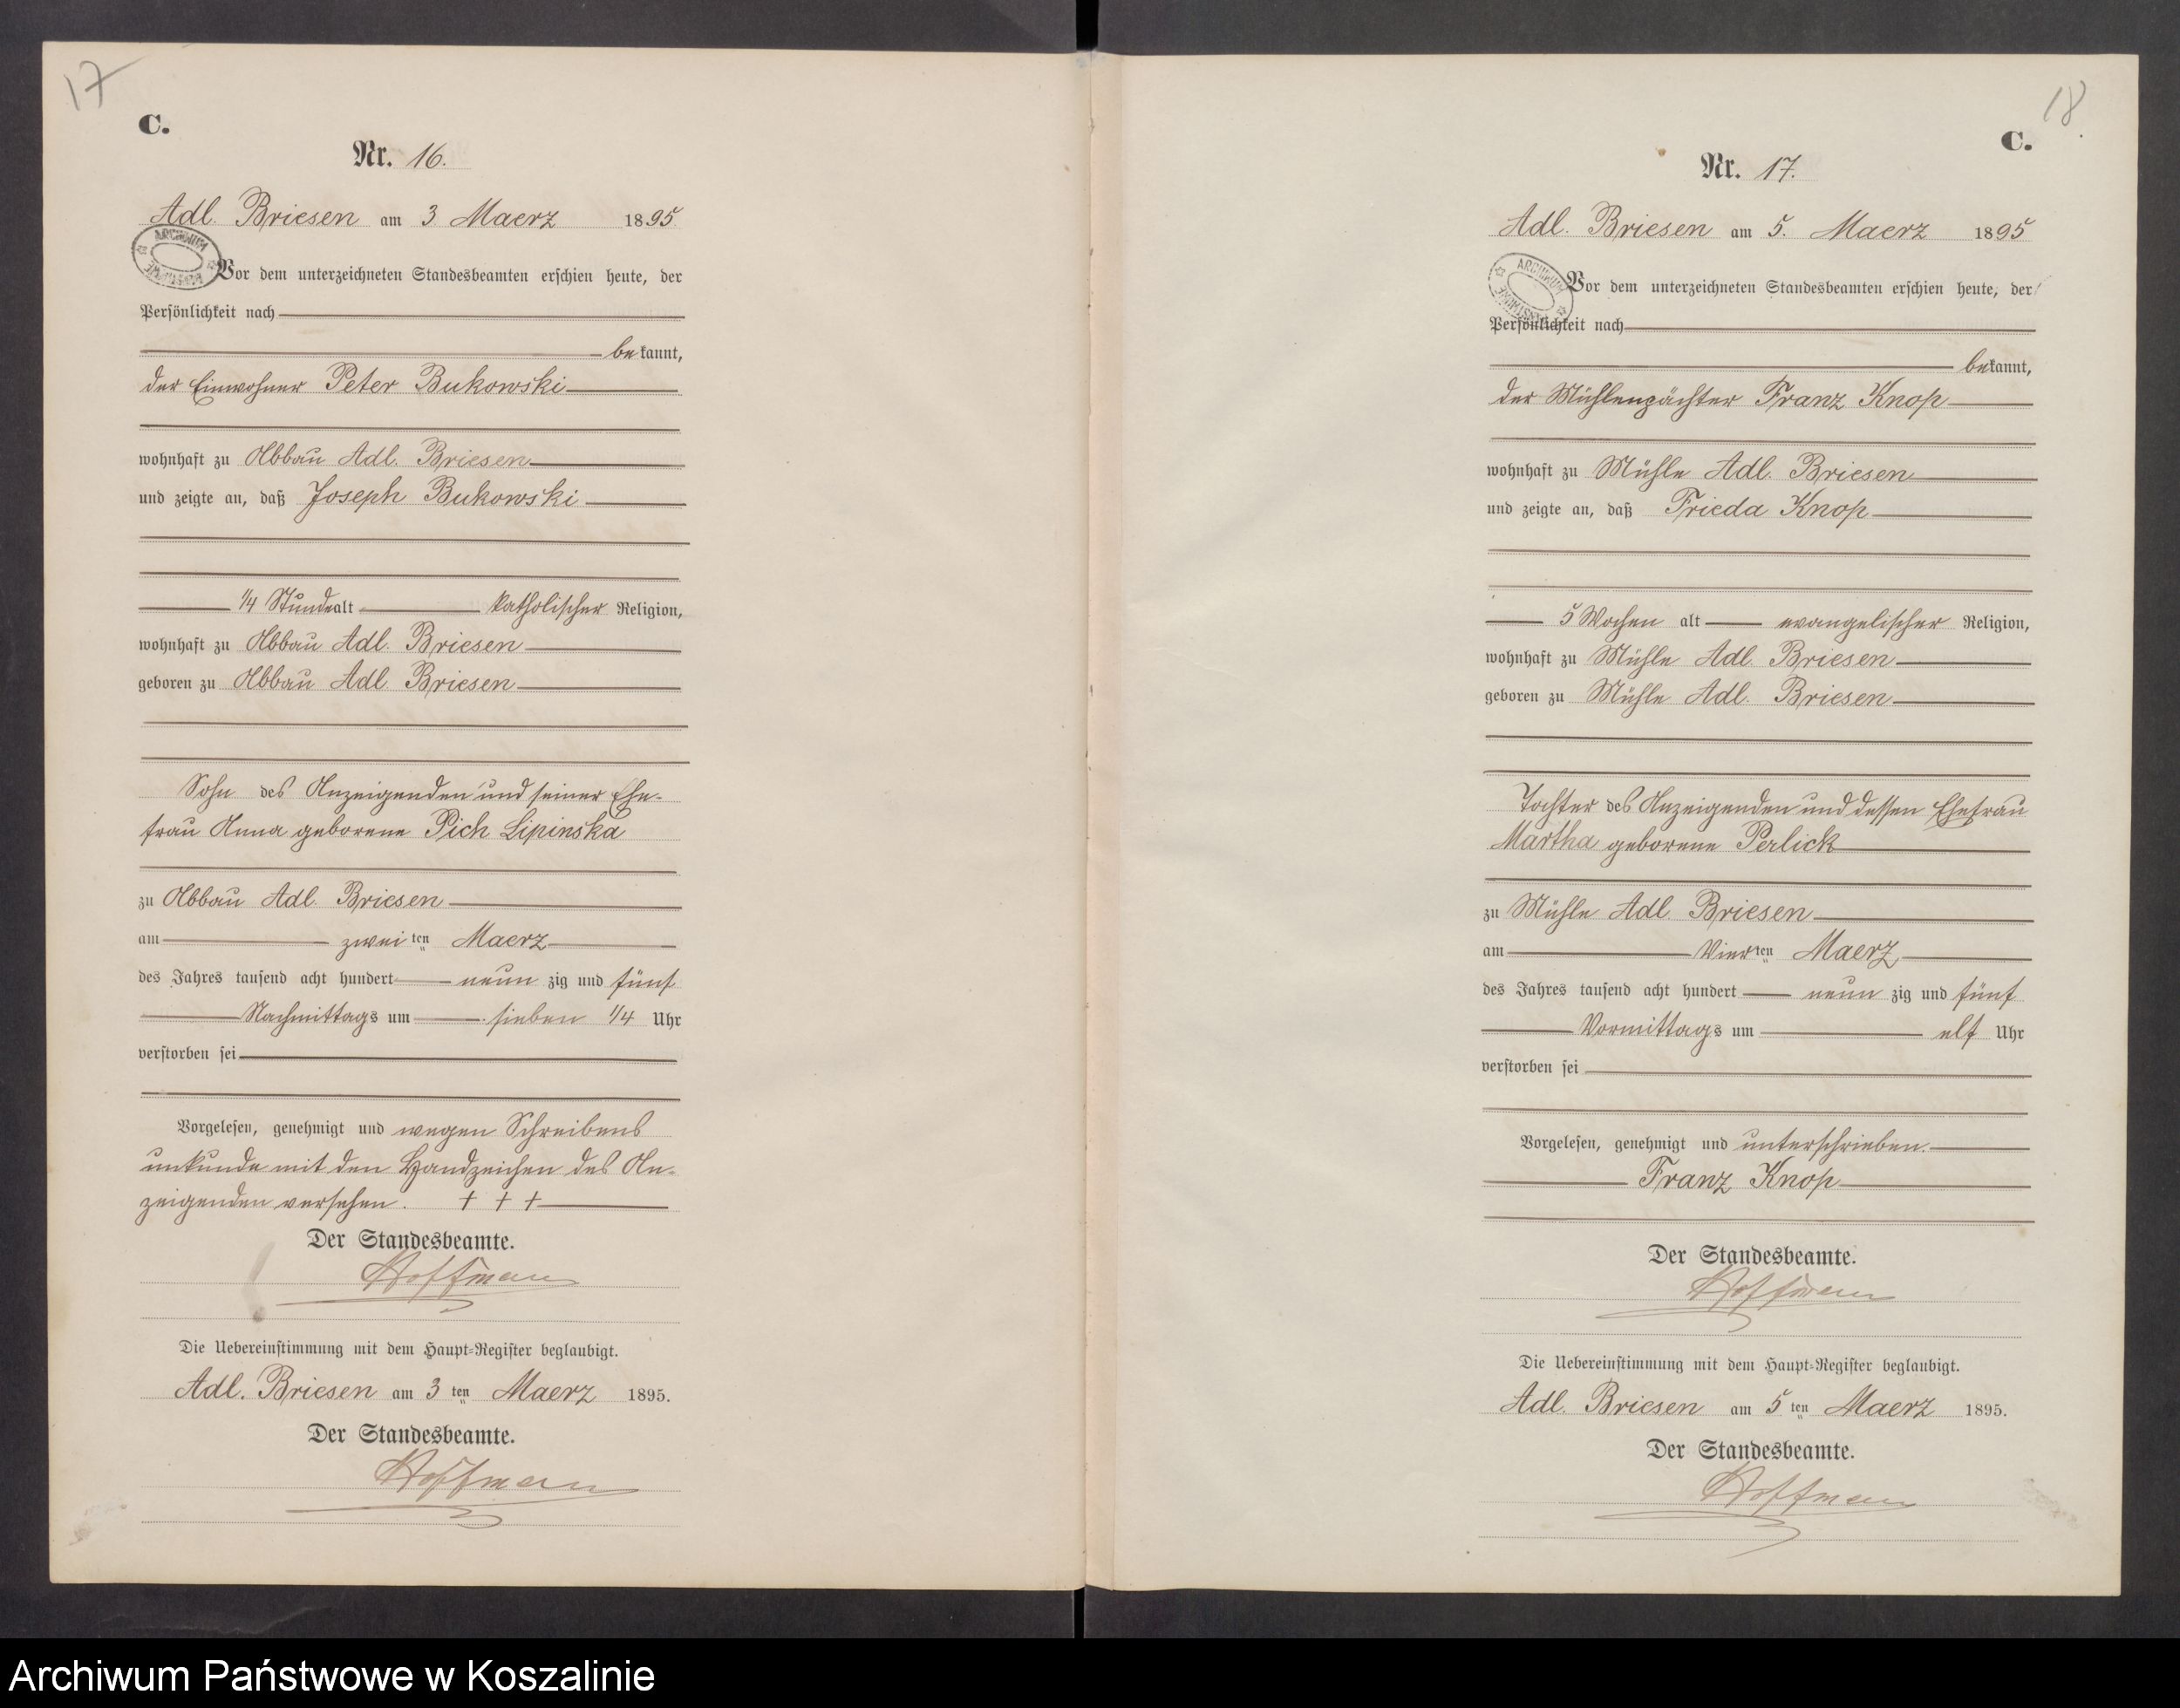 17
C.
Nr. 16.
Adl. Briesen am 3 Maerz 1895
ARCHIWUM
Vor dem unterzeichneten Standesbeamten erschien heute, der
Persönlichkeit nach
bekannt,
der Einwohner Peter Bukowski
wohnhaft zu Abbau Adl. Briesen
und zeigte an, daß Joseph Bukowski
1/4 Stunde alt katholischer Religion,
wohnhaft zu Abbau Adl. Briesen
geboren zu Abbau Adl. Briesen
Sohn des Anzeigenden und seiner Ehe-
frau Anna geborene Pich Lipinska
zu Abbau Adl. Briesen
am zwei ten Maerz
des Jahres tausend acht hundert neun zig und fünf
Nachmittags um sieben 1/4 Uhr
verstorben sei
Vorgelesen, genehmigt und wegen Schreibens
unkunde mit den Handzeichen des An-
zeigenden versehen. + + +
Der Standesbeamte.
Hoffmann
Die Uebereinstimmung mit dem Haupt-Register beglaubigt.
Adl. Briesen am 3 ten Maerz 1895.
Der Standesbeamte.
Hoffmann
18
C.
Nr. 17.
Adl. Briesen am 5. Maerz 1895
ARCHIWUM
Vor dem unterzeichneten Standesbeamten erschien heute, der
Persönlichkeit nach
bekannt,
der Mühlenpächter Franz Knop
wohnhaft zu Mühle Adl. Briesen
und zeigte an, daß Frieda Knop
5 Wochen alt evangelischer Religion,
wohnhaft zu Mühle Adl. Briesen
geboren zu Mühle Adl. Briesen
Tochter des Anzeigenden und dessen Ehefrau
Martha geborene Perlick
zu Mühle Adl. Briesen
am Vierten Maerz
des Jahres tausend acht hundert neun zig und fünf
Vormittags um elf Uhr
verstorben sei
Vorgelesen, genehmigt und unterschrieben.
Franz Knop
Der Standesbeamte.
Hoffmann
Die Uebereinstimmung mit dem Haupt-Register beglaubigt.
Adl. Briesen am 5 ten Maerz 1895.
Der Standesbeamte.
Hoffmann
Archiwum Państwowe w Koszalinie